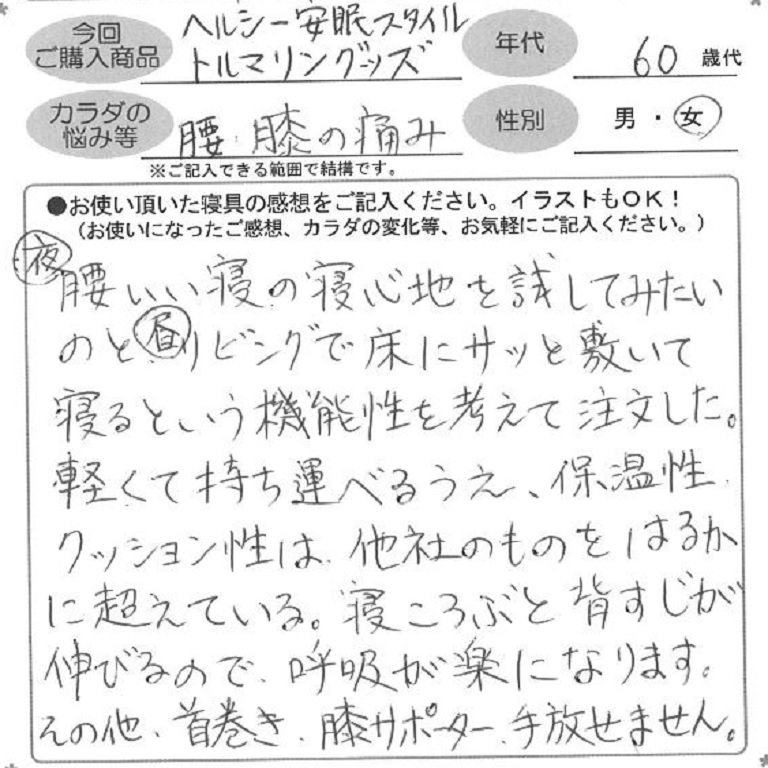 今回
ご購入商品
ヘルシー安眠スタイル
トルマリングッズ
年代
60 歳代
カラダの
悩み等
腰・膝の痛み
性別
男・女
※ご記入できる範囲で結構です。
●お使い頂いた寝具の感想をご記入ください。イラストもOK!
(お使いになったご感想、カラダの変化等、お気軽にご記入ください。)
夜
腰いい寝の寝心地を試してみたい
のと昼リビングで床にサッと敷いて
寝るという機能性を考えて注文した。
軽くて持ち運べるうえ、保温性
クッション性は、他社のものをはるか
に超えている。寝ころぶと背すじが
伸びるので、呼吸が楽になります。
その他、首巻き、膝サポーター、手放せません。